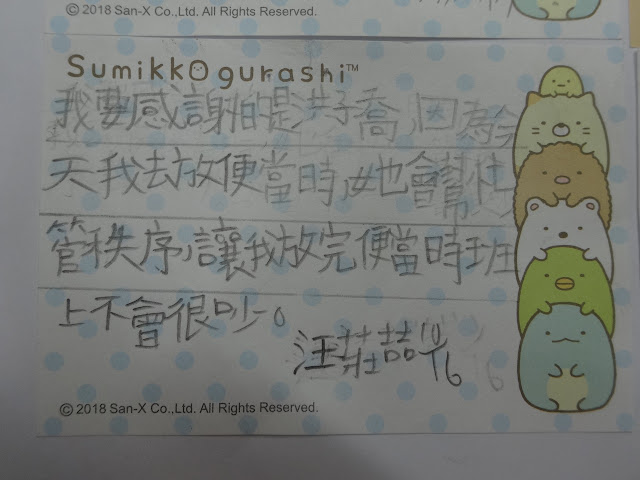 © 2018 San-X Co.,Ltd. All Rights Reserved.
Sumikkogurashi™
我要感謝的是洪子喬,因為今
天我去放便當時,她會幫忙
管秩序,讓我放完便當時班
上不會很吵。
汪莊喆 10/16
© 2018 San-X Co.,Ltd. All Rights Reserved.